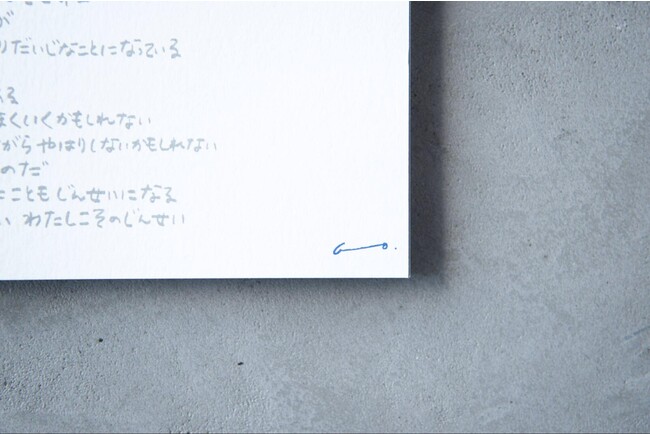 が
りだいじなことになっている
ある
まくいくかもしれない
がら やはりしないかもしれない
のだ
たこともじんせいになる
い わたしこそのじんせい